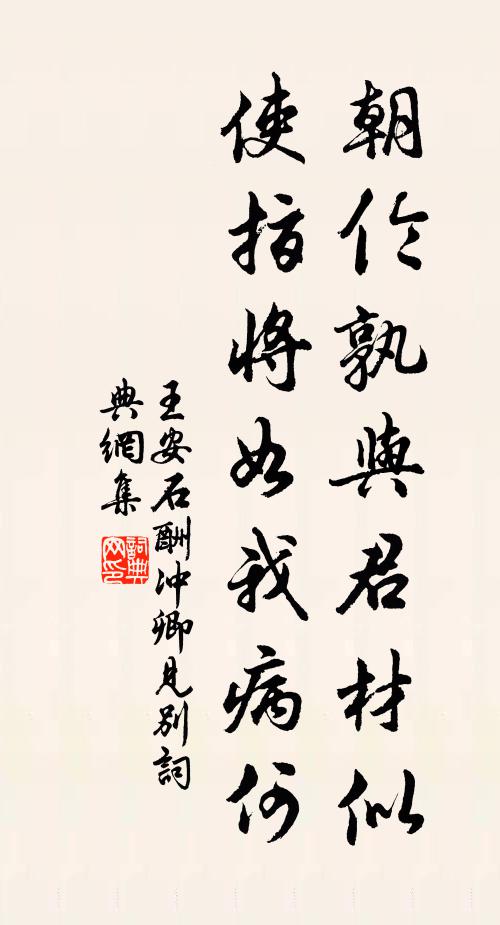 朝伦孰與君材似
使指将如我病何
王安石酬冲卿見别詞
典網集
詞典网印